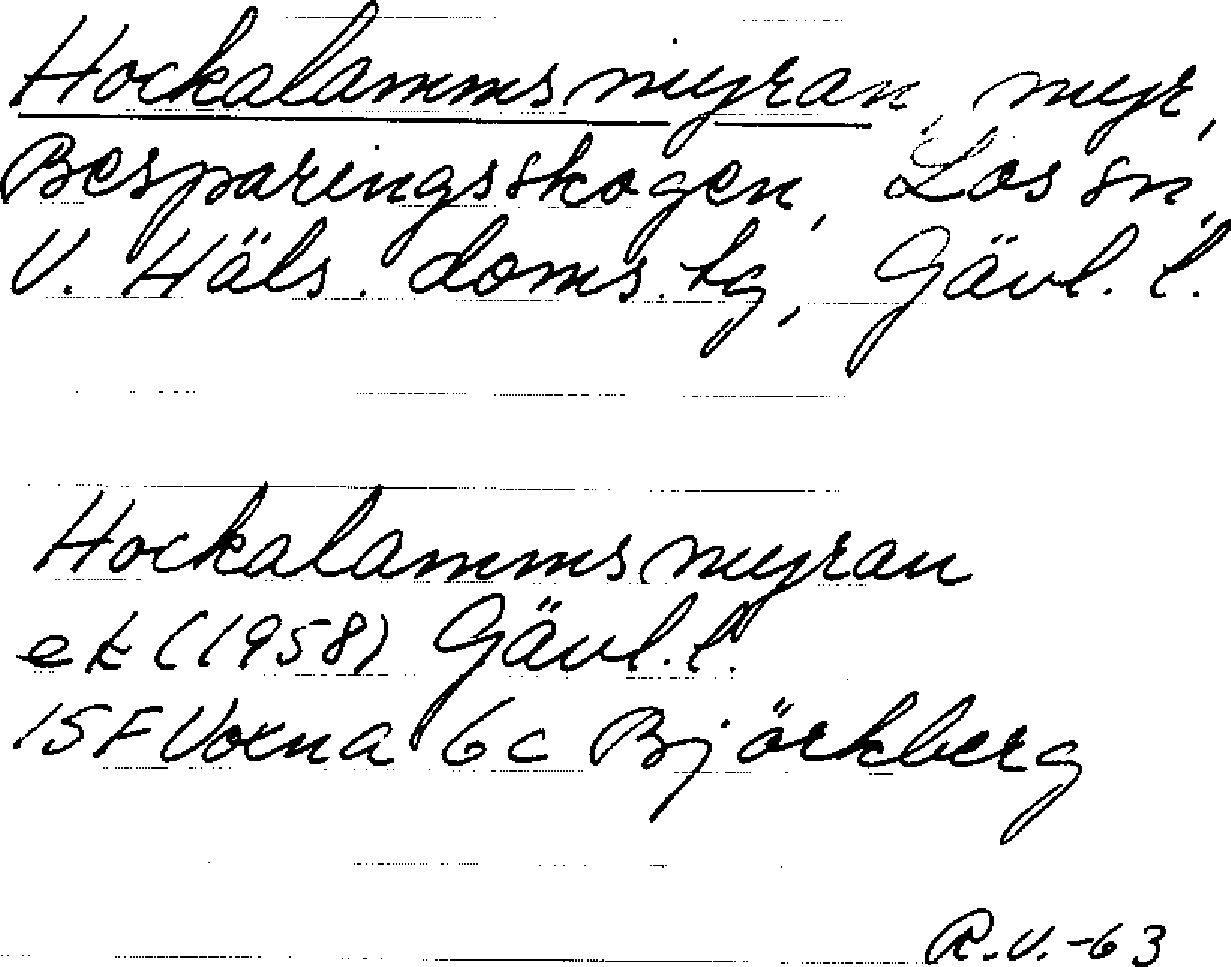 Hockalammsmyran, myr,
Besparingsskogen, Los sn,
V. Häls. doms. tg, Gävl. l.
Hockalammsmyran
ek (1958) Gävl. l.
15F Voxna 6c Björkberg
R.V.-63